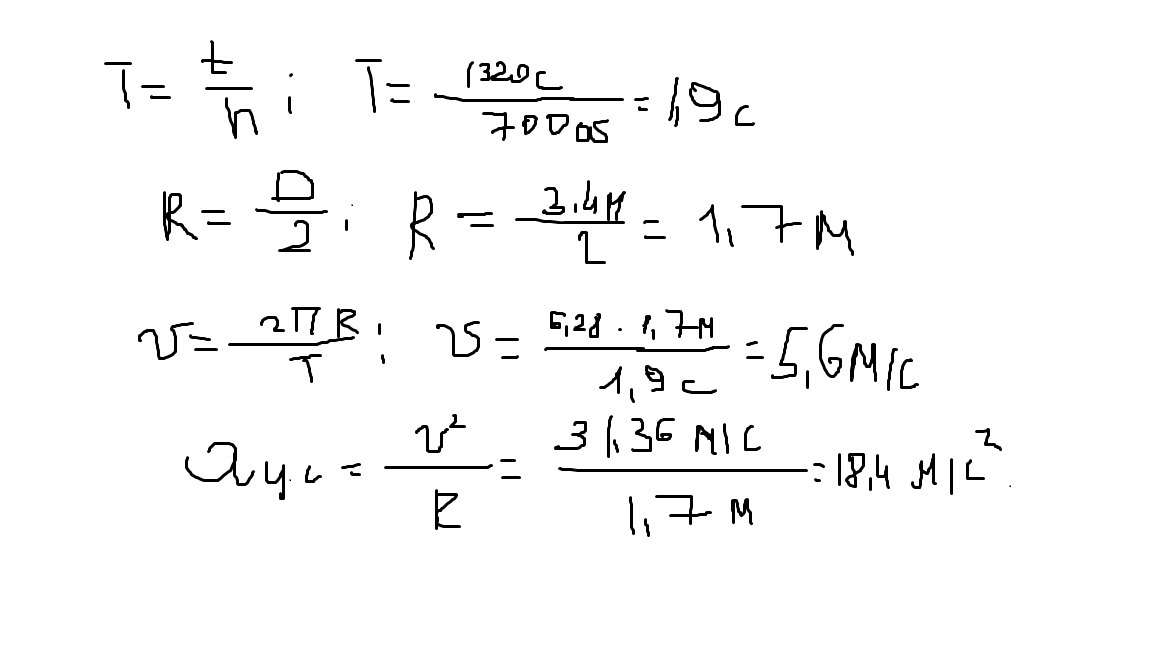 T = t/n ; T = 1320с/700об = 1,9с
R = D/2 ; R = 3,4м/2 = 1,7м
v = 2πR/T ; v = 6,28 · 1,7м/1,9с = 5,6м/с
aц.с = v²/R = 31,36 м/с/1,7 м = 18,4 м/с²